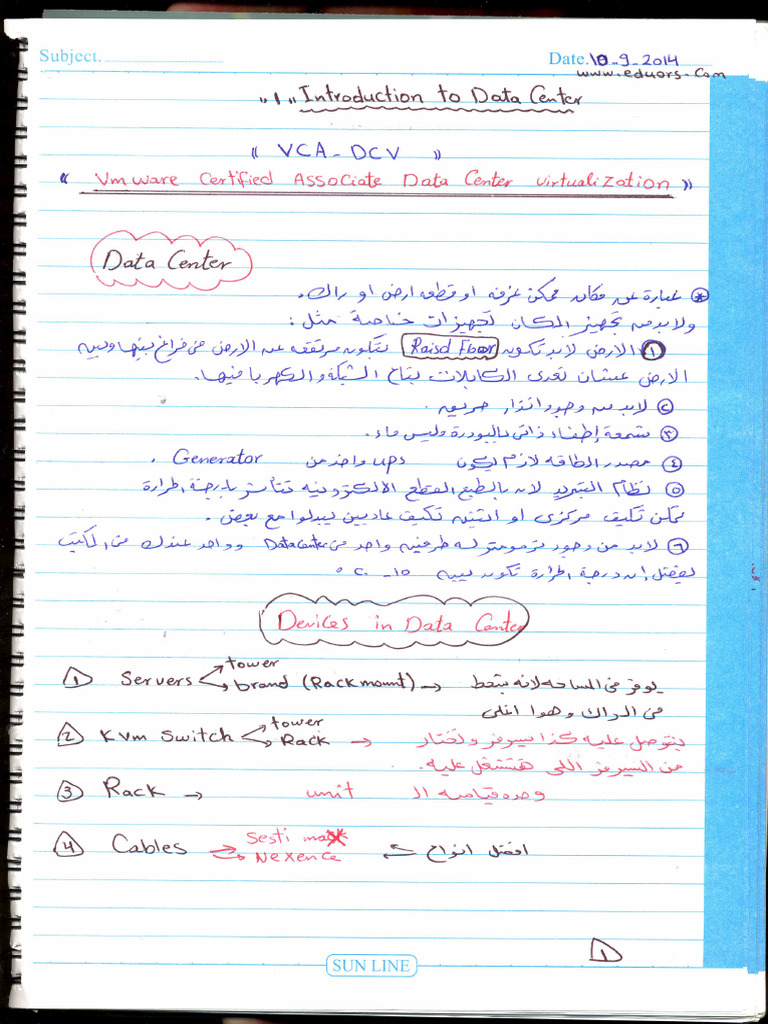 Subject. Date. 10-9-2014
www.eduors.com
"1" Introduction to Data Center
" VCA-DCV "
" Vmware Certified Associate Data Center virtualization "
Data Center
* عبارة عن مكان ممكن غرفه او قطعه ارض او راك.
ولابد من تجهيز المكان تجهيزات خاصة مثل:
① الارض لابد تكون Raisd Floor لتكون مرتفعه عن الارض فى فراغ بينها وبين
الارض عشان تعدى الكابلات بتاع الشبكة والكهربا فيها.
② لابد من وجود انذار حريق.
③ شمعة إطفاء ذاتى بالبودرة وليس ماء.
④ مصدر الطاقه لازم يكون ups واخد من Generator.
⑤ نظام التبريد لانه بالطبع القطع الالكترونيه تتأثر بدرجة الحرارة
ممكن تكيف مركزى او اتنين تكيف عاديين يبدلوا مع بعض.
⑥ لابد من وجود ترمومتر له طرفين واحد فى Data Center وواحد عندك فى المكتب
يفضل إن درجة الحرارة تكون بين 15-20°
Devices in Data Center
1 Servers tower
brand (Rack mount) → يوفر فى المساحه لانه بيتحط
فى الراك وهوا اغلى
2 Kvm switch tower
Rack → بتوصل عليه كذا سيرفر وتختار
من السيرفر اللى هتشتغل عليه.
3 Rack → وحده قياسه ال unit
4 Cables → Sesti max
→ Nexence افضل انواع
1
SUN LINE